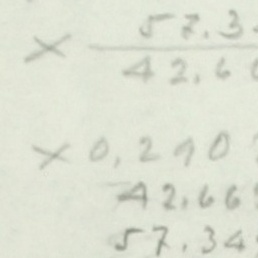 57.3
× 42.6
× 0.290
42.66
57.34